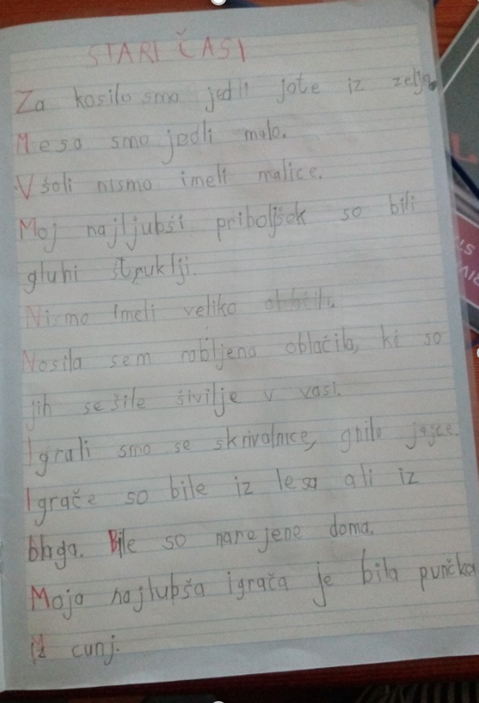 STARI ČASI
Za kosilo smo jedli jote iz zelja.
Meso smo jedli malo.
V šoli nismo imeli malice.
Moj najljubši priboljšek so bili
gluhi štruklji.
Nismo imeli veliko oblačil.
Nosila sem rabljena oblačila, ki so
jih sešile šivilje v vasi.
Igrali smo se skrivalnice, gnilo jajce.
Igrače so bile iz lesa ali iz
blaga. Bile so narejene doma.
Moja najlubša igrača je bila punčka
iz cunj.